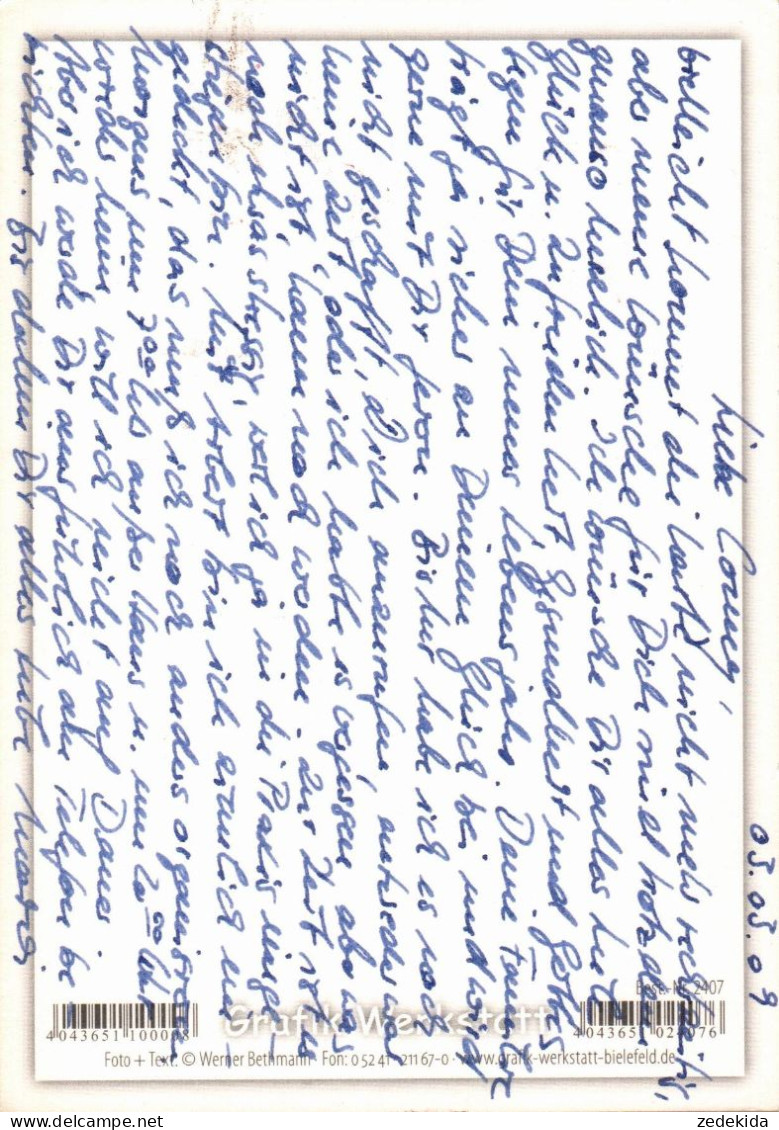 05.05.09
Liebe Conny,
vielleicht kommt die Karte nicht mehr rechtzeitig,
aber meine Wünsche für Dich sind trotzdem
genauso herzlich. Ich wünsche Dir alles Liebe
Glück u. Zufriedenheit Gesundheit und Gottes
Segen für Dein neues Lebensjahr. Deine Familie
trägt ja sicher zu Deinem Glück bei und wird
gerne mit Dir feiern. Bisher habe ich es noch
nicht geschafft, Dich anzurufen, entweder war
keine Zeit, oder ich hatte es vergessen, aber was
nicht ist, kann noch werden. Zur Zeit ist es
noch etwas stressig, weil ich ja in die Praxis
Mit Arbeit bin ich ziemlich
das muß ich noch anders organisieren
Morgens um 7 00 Uhr außer Haus u. um 20 00 Uhr
will ich nicht auf Dauer.
Aber ich werde Dir ausführlich am Telefon be-
richten. Bis dahin Dir alles Liebe
Best.-Nr. 2407
4043651100008
Grafik Werkstatt
Foto + Text: © Werner Bethmann · Fon: 0 52 41 - 211 67-0 · www.grafik-werkstatt-bielefeld.de
zedekida